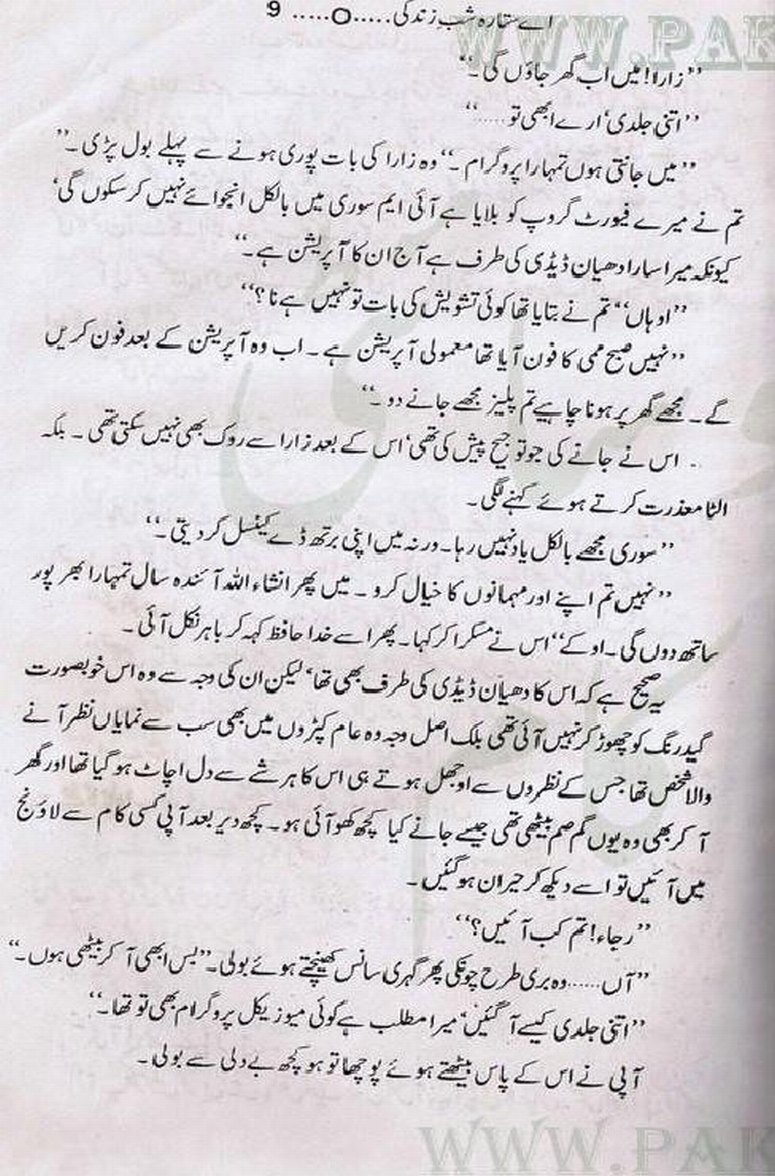 اے ستارہ شبِ زندگی.....O..... 9
WWW.PAK
”زارا! میں اب گھر جاؤں گی۔“
”اتنی جلدی‘ ارے ابھی تو.....“
”میں جانتی ہوں تمہارا پروگرام۔“ وہ زارا کی بات پوری ہونے سے پہلے بول پڑی۔”
تم نے میرے فیورٹ گروپ کو بلایا ہے آئی ایم سوری میں بالکل انجوائے نہیں کر سکوں گی‘
کیونکہ میرا سارا دھیان ڈیڈی کی طرف ہے آج ان کا آپریشن ہے۔“
”اوہاں“ ”تم نے بتایا تھا کوئی تشویش کی بات تو نہیں ہے نا؟“
”نہیں صبح ممی کا فون آیا تھا معمولی آپریشن ہے۔ اب وہ آپریشن کے بعد فون کریں
گے۔ مجھے گھر پر ہونا چاہیے تم پلیز مجھے جانے دو۔“
۔ اس نے جانے کی جو توجیح پیش کی تھی‘ اس کے بعد زارا سے روک بھی نہیں سکتی تھی۔ بلکہ
الٹا معذرت کرتے ہوئے کہنے لگی۔
”سوری مجھے بالکل یاد نہیں رہا۔ ورنہ میں اپنی برتھ ڈے کینسل کر دیتی۔“
”نہیں تم اپنے اور مہمانوں کا خیال کرو۔ میں پھر انشاء اللہ آئندہ سال تمہارا بھرپور
ساتھ دوں گی۔ اوکے“ اس نے مسکرا کر کہا۔ پھر اسے خدا حافظ کہہ کر باہر نکل آئی۔
یہ صحیح ہے کہ اس کا دھیان ڈیڈی کی طرف بھی تھا‘ لیکن ان کی وجہ سے وہ اس خوبصورت
گیدرنگ کو چھوڑ کر نہیں آئی تھی بلک اصل وجہ وہ عام کپڑوں میں بھی سب سے نمایاں نظر آنے
والا شخص تھا جس کے نظروں سے اوجھل ہوتے ہی اس کا ہر شے سے دل اچاٹ ہو گیا تھا اور گھر
آ کر بھی وہ یوں گم صم بیٹھی تھی جیسے جانے کیا کچھ کھو آئی ہو۔ کچھ دیر بعد آپی کسی کام سے لاؤنج
میں آئیں تو اسے دیکھ کر حیران ہو گئیں۔
”رجاء! تم کب آئیں؟“
”آں...... وہ بری طرح چونکی پھر گہری سانس کھینچتے ہوئے بولی۔“ بس ابھی آ کر بیٹھی ہوں۔“
”اتنی جلدی کیسے آ گئیں‘ میرا مطلب ہے کوئی میوزیکل پروگرام بھی تو تھا۔“
آپی نے اس کے پاس بیٹھتے ہوئے پوچھا تو ہو کچھ بے دلی سے بولی۔
WWW.PAK